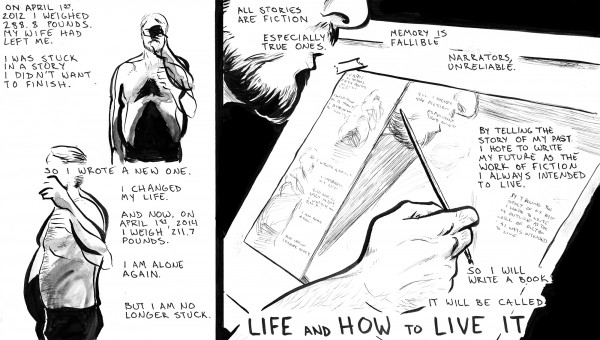 ON APRIL 1ST,
2012 I WEIGHED
288.8 POUNDS.
MY WIFE HAD
LEFT ME.
I WAS STUCK
IN A STORY
I DIDN'T WANT
TO FINISH.
SO I WROTE A NEW ONE.
I CHANGED
MY LIFE.
AND NOW, ON
APRIL 1ST, 2014
I WEIGH 211.7
POUNDS.
I AM ALONE
AGAIN.
BUT I AM NO
LONGER STUCK.
ALL STORIES
ARE FICTION
ESPECIALLY
TRUE ONES.
MEMORY IS
FALLIBLE
NARRATORS,
UNRELIABLE.
BY TELLING THE
STORY OF MY PAST
I HOPE TO WRITE
MY FUTURE AS THE
WORK OF FICTION
I ALWAYS INTENDED
TO LIVE.
SO I WILL
WRITE A BOOK
IT WILL BE CALLED
LIFE AND HOW TO LIVE IT